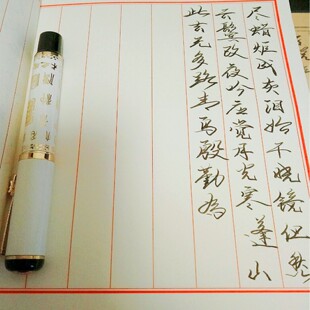 尽蜡炬成灰泪始干晓镜但愁
云鬓改夜吟应觉月光寒蓬山
此去无多路青鸟殷勤为